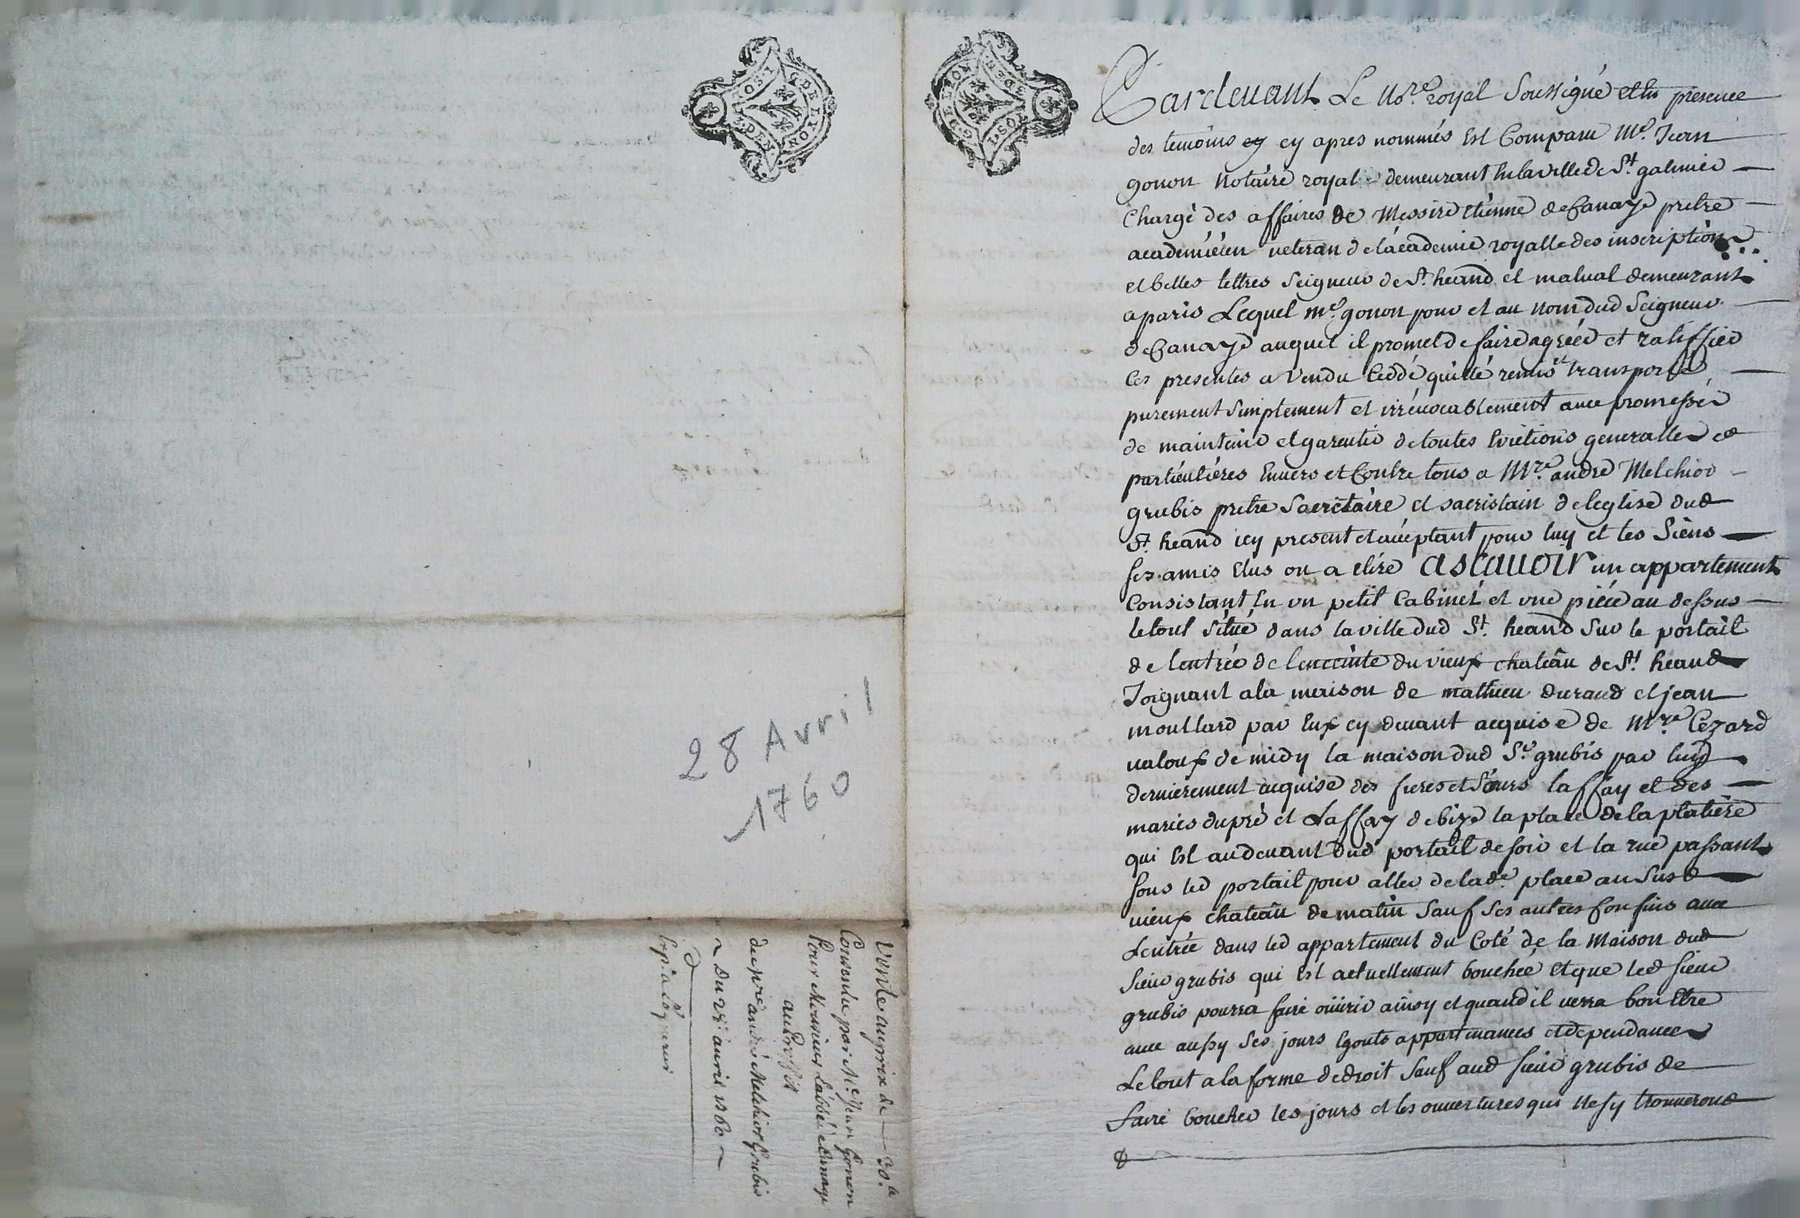 Pardevant Le No.re royal Soussigné et en presence
des temoins cy apres nommés Est Comparu Me. Jean
gonon Notaire royal demeurant En la ville de St. galmier
Chargé des affaires de Messire Etienne de Canaye pretre
academicien veteran de l'academie royalle des inscriptions
et belles lettres Seigneur de St. heand et malval demeurant
a paris Lequel me. gonon pour et au nom dud Seigneur
de Canaye auquel il promet de faire agréer et ratiffier
Ces presentes a vendu Ceddé quitté remis et transporté
purement simplement et irrévocablement avec promesse
de maintenir et garentir de toutes Evictions generalles et
particulières Envers et Contre tous a Mre. andré Melchior
grubis pretre Secretaire et sacristain de leglise dud
St. heand icy present et acceptant pour luy et les Siens
ses amis Elus ou a elire ascavoir un appartement
Consistant En un petit Cabinet et une pièce au dessus
le tout Situé dans la ville dud St. heand Sur le portail
de lentrée de lenceinte du vieux chateau de St. heand
Joignant a la maison de mathieu durand et jean
moullard par Eux cy devant acquise de Mre. Cezard
valoux de midy la maison dud Sr. grubis par luy
dernierement acquise des freres et Sœurs laffay et des
mariés dupré et Laffay de bize la place de la platière
qui Est au devant dud portail de soir et la rue passant
sous led portail pour aller de lade. place au Susd
vieux chateau de matin Sauf Ses autres Confins avec
Lentrée dans led appartement du Coté de la Maison dud
Sieur grubis qui Est actuellement bouchée et que led sieur
grubis pourra faire ouvrir ainsy et quand il verra bon Etre
avec aussy Ses jours Egouts appartenances et dependances
Le tout a la forme de droit Sauf aud sieur grubis de
faire boucher les jours et les ouvertures qui ne sy trouveront
28 Avril
1760
Vente au prix de 30 #
Consentue par Me. Jean Gonon
Pour Monsieur L'abbé de Canaye
au Proffit
de Mre André Melchior Grubis
Du 28e avril 1760